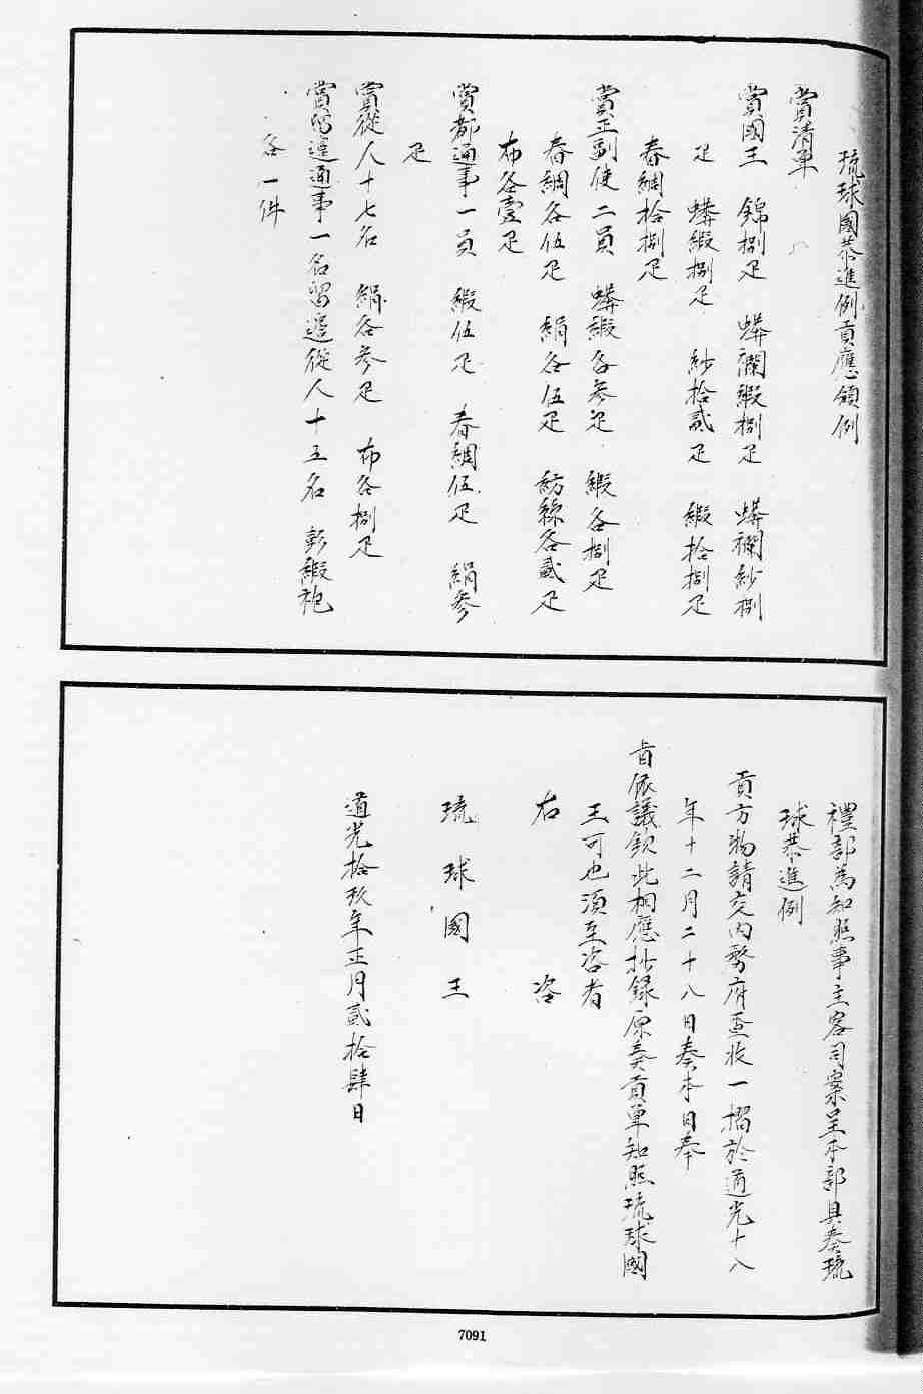 琉球國恭進例貢應領例
賞清單
賞國王 錦捌疋 蟒襴緞捌疋 蟒襴紗捌
疋 蟒緞捌疋 紗拾貳疋 緞拾捌疋
春綢拾捌疋
賞正副使二員 蟒緞各參疋 緞各捌疋
春綢各伍疋 絹各伍疋 紡絲各貳疋
布各壹疋
賞都通事一員 緞伍疋 春綢伍疋 絹參
疋
賞從人十七名 絹各參疋 布各捌疋
賞留邊通事一名留邊從人十五名 彭緞袍
各一件
禮部為知照事主客司案呈本部具奏琉
球恭進例
貢方物請交內務府查收一摺於道光十八
年十二月二十八日奏本日奉
旨依議欽此相應抄錄原奏貢單知照琉球國
王可也須至咨者
右 咨
琉球國王
道光拾玖年正月貳拾肆日
7091